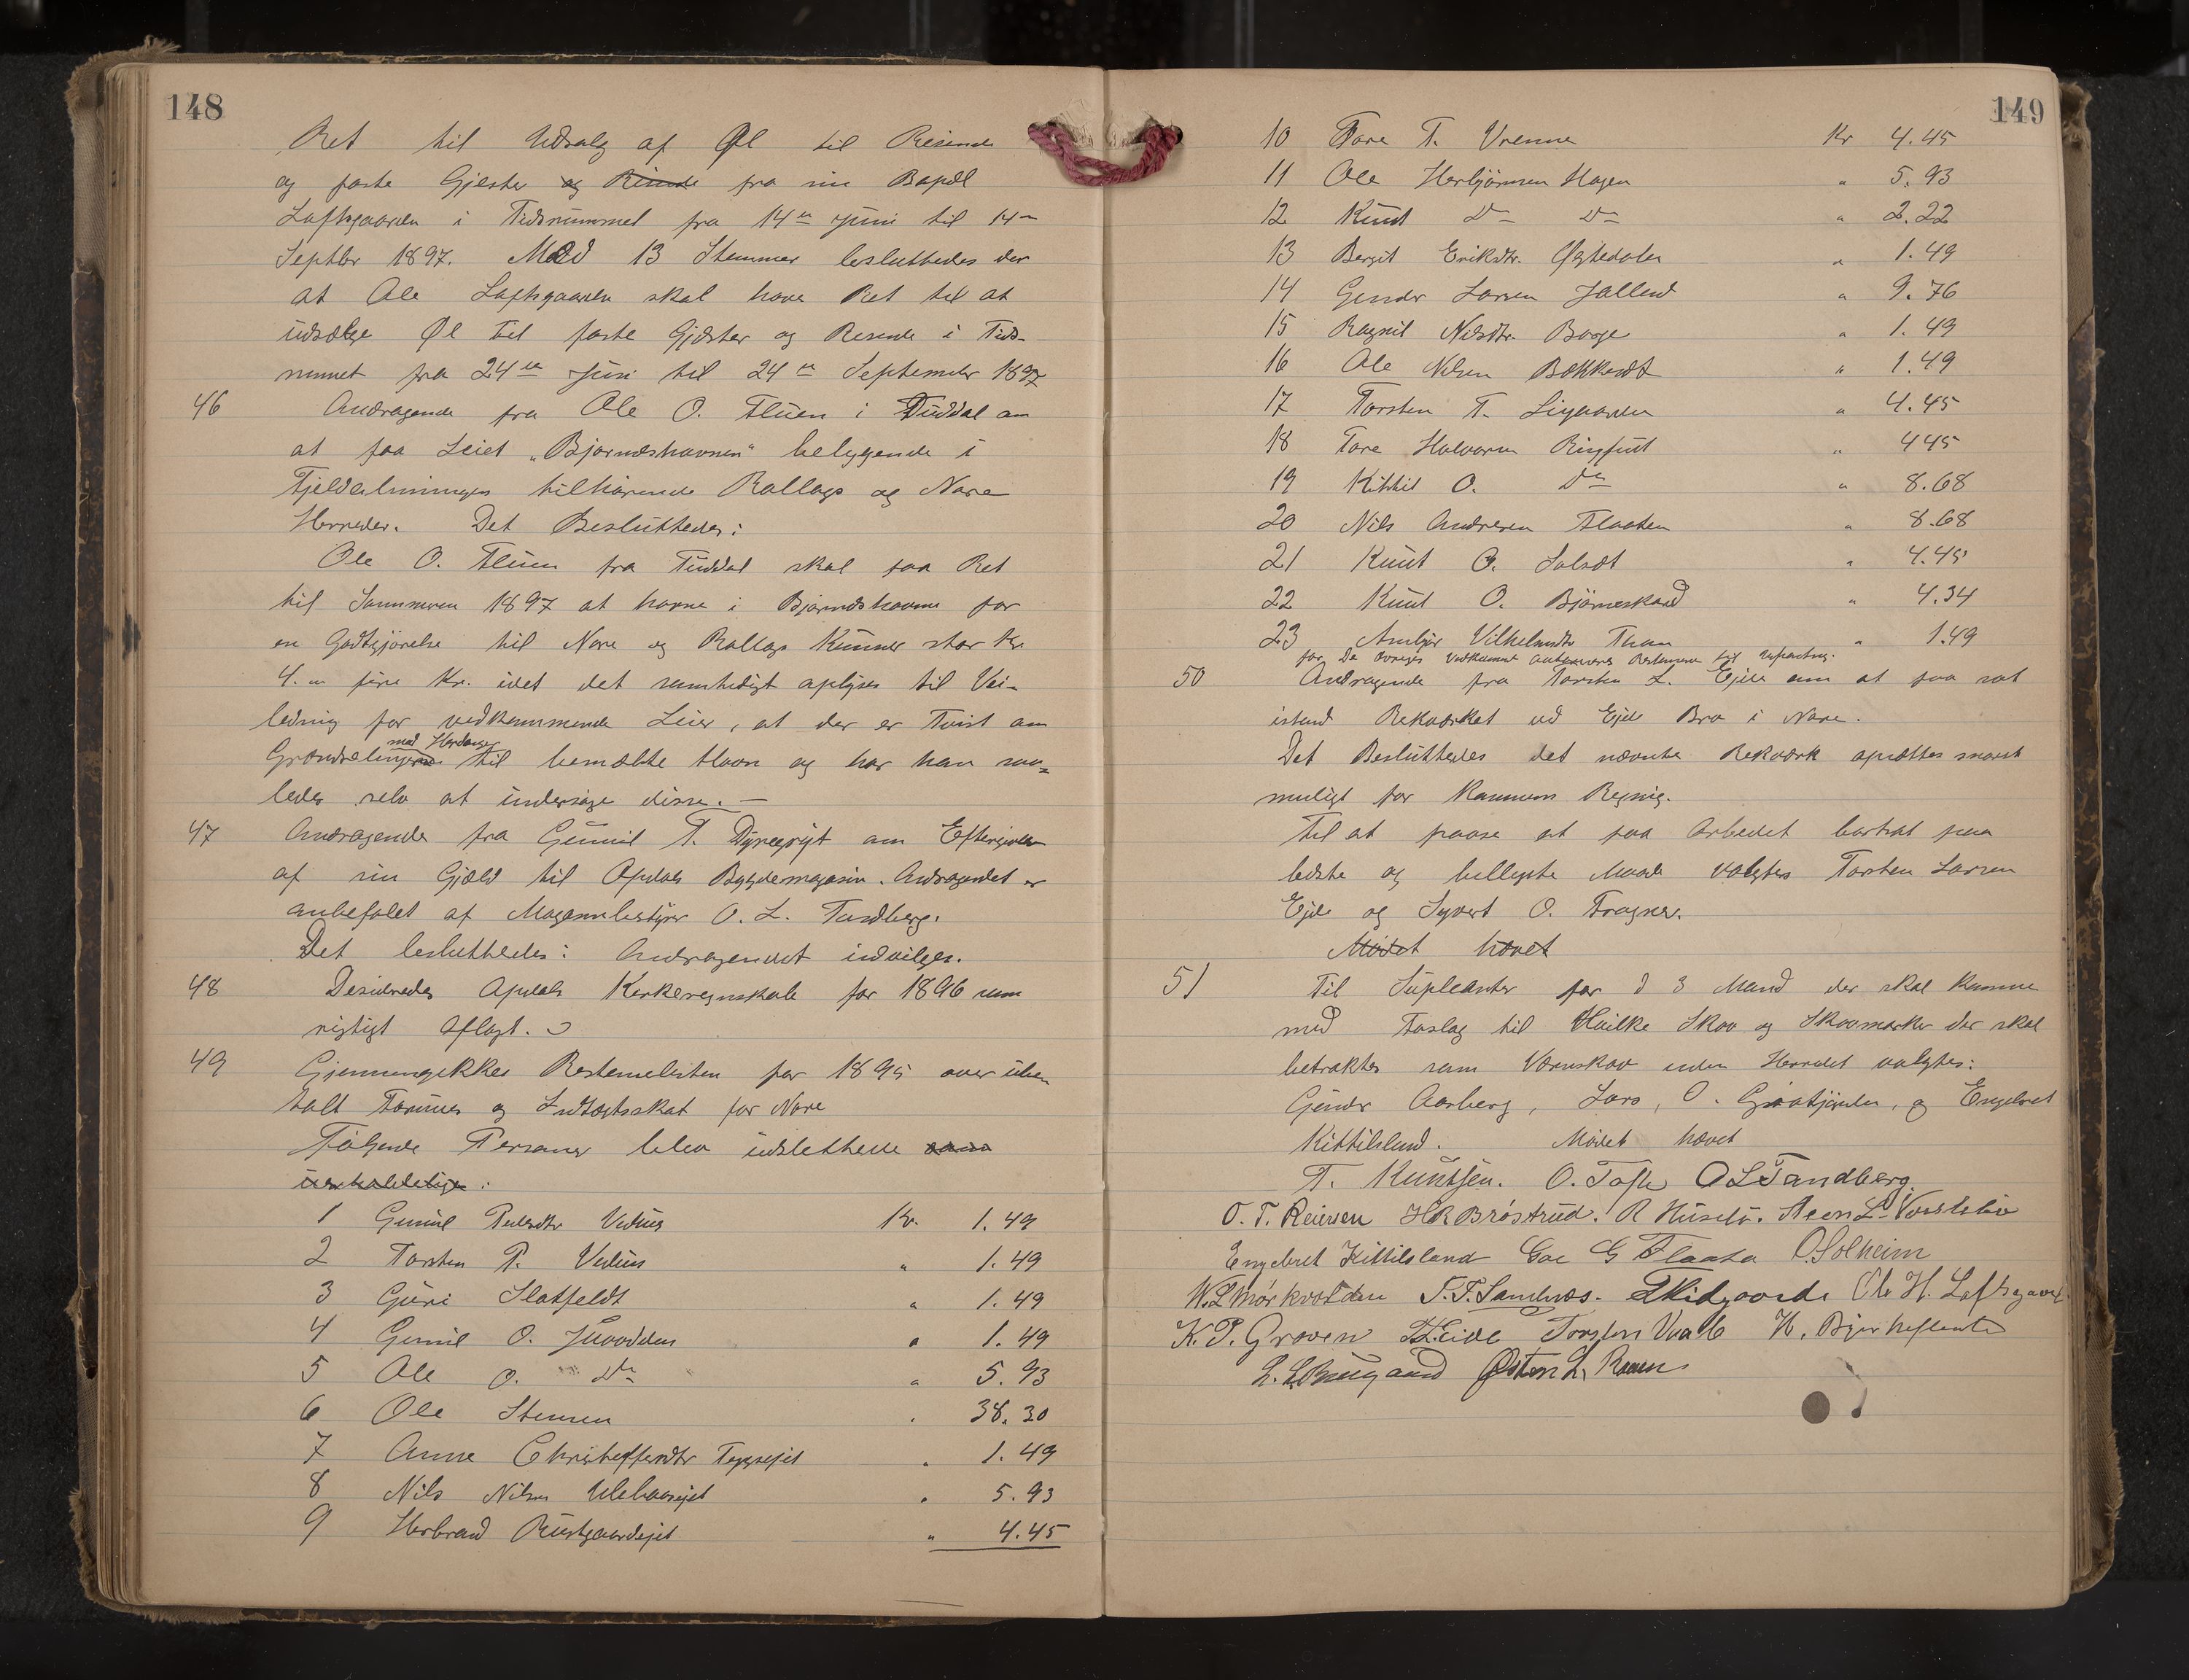 148
Ret til Udsalg af Øl til Reisende
og faste Gjester og Reisende fra sin Bopæl
Loftsgaarden i Tidsrummet fra 14de Juni til 14de
Septbr 1897. Med 13 Stemmer besluttedes der
at Ole Loftsgaarden skal have Ret til at
udsælge Øl til faste Gjæster og Resende i Tids-
rummet fra 24de Juni til 24de September 1897
46 Andragende fra Ole O. Fluen i Tuddal om
at faa Leiet „Bjørnæshavnen“ beliggende i
Fjeldalmningen tilhørende Rollags og Nore
Herreder. Det Besluttedes:
Ole O. Fluen fra Tuddal skal faa Ret
til Sommeren 1897 at havne i Bjørnæshavnen for
en Godtgjørelse til Nore og Rollags Kummer stor Kr
4.00 fire Kr. idet det samtidigt oplyses til Vei-
ledning for vedkommende Leier, at der er Tvist om
med Hardanger
Grændselinjerne til bemælte Havn og har han saa=
ledes selv at undersøge disse. —
47 Andragende fra Gunil T. Dynegrijt om Eftergivelse
af sin Gjæld til Opdals Bygdemagasin. Andragendet er
anbefalet af Magasinbestyrer O. L. Tandberg.
Det besluttedes: Andragendet indvilges.
48 Desideredes Opdals Kirkeregnskab for 1896 som
rigtigt aflagt.
49 Gjennemgikkes Restancelisten for 1895 over ube-
talt Formues og Indtægtsskat for Nore
Følgende Personer blev udslettede som
uerholdelige:
1 Gunil Pedersdtr Vedhus Kr. 1.49
2 Torsten P. Vedhus " 1.49
3 Guri Slatfeldt " 1.49
4 Gunil O. Juvodden " 1.49
5 Ole O. Do " 5.93
6 Ole Stensen " 38.30
7 Anne Christoffersdtr Toppejet " 1.49
8 Nils Nilsen " 5.93
9 Herbrand Rustgaardejet " 4.45
149
10 Tore T. Vrenne Kr 4.45
11 Ole Herbjørnsen Hagen " 5.93
12 Knut Do Do " 2.22
13 Bergit Eriksdtr. Øygtedalen " 1.49
14 Gunder Larsen Jallend " 9.76
15 Ragnil Nilsdtr. Borge " 1.49
16 Ole Nilsen Bækkerdt " 1.49
17 Torsten T. Ligaarden " 4.45
18 Tore Halvorsen Ringfud " 445
19 Kittil O. Do " 8.68
20 Nils Andresen Flaaten " 8.68
21 Knut O. Solsdt " 4.45
22 Knut O. Bjørneskard " 4.34
23 Ambjør Vilhelmsdtr Thun " 1.49
for De øvriges Vedkomme antageres Restancen til
50 Andragende fra Torsten L. Ejde om at faa sat
istand Rekværket ved Ejde Bro i Nore.
Det Besluttedes det nævnte Rekværk oprættes snarest
muligt for Kommunens Regnig.
Til at passe at faa Arbedet bortsat paa
bedste og belligste Maade valgtes Torsten Larsen
Ejde og Syvert O. Fragner.
Mødet hævet
51 Til Supleanter for d 3 Mand der skal komme
med Forslag til Hvilke Skov og Skovmarker der skal
betraktes som Værnskov inden Herredet valgtes:
Gunder Aasberg, Lars, O. Graatjønden, og Engebret
Kittilsland. Mødet hævet
T. Knutsen. O. Tofte O L Tandberg.
O. T. Reiersen HR Brøstrud. R Huseb. Steen L.
Engebret Kittilsland Goe G Flaata O. Solheim
N. L Mørkvolden T. T. Sandnæs. Skidgaarde Ole H. Loftsgaard
K. P. Groven T. Eide Torsten Vaale H. Bjerkeflaate
L. L. Østen L. Raaen